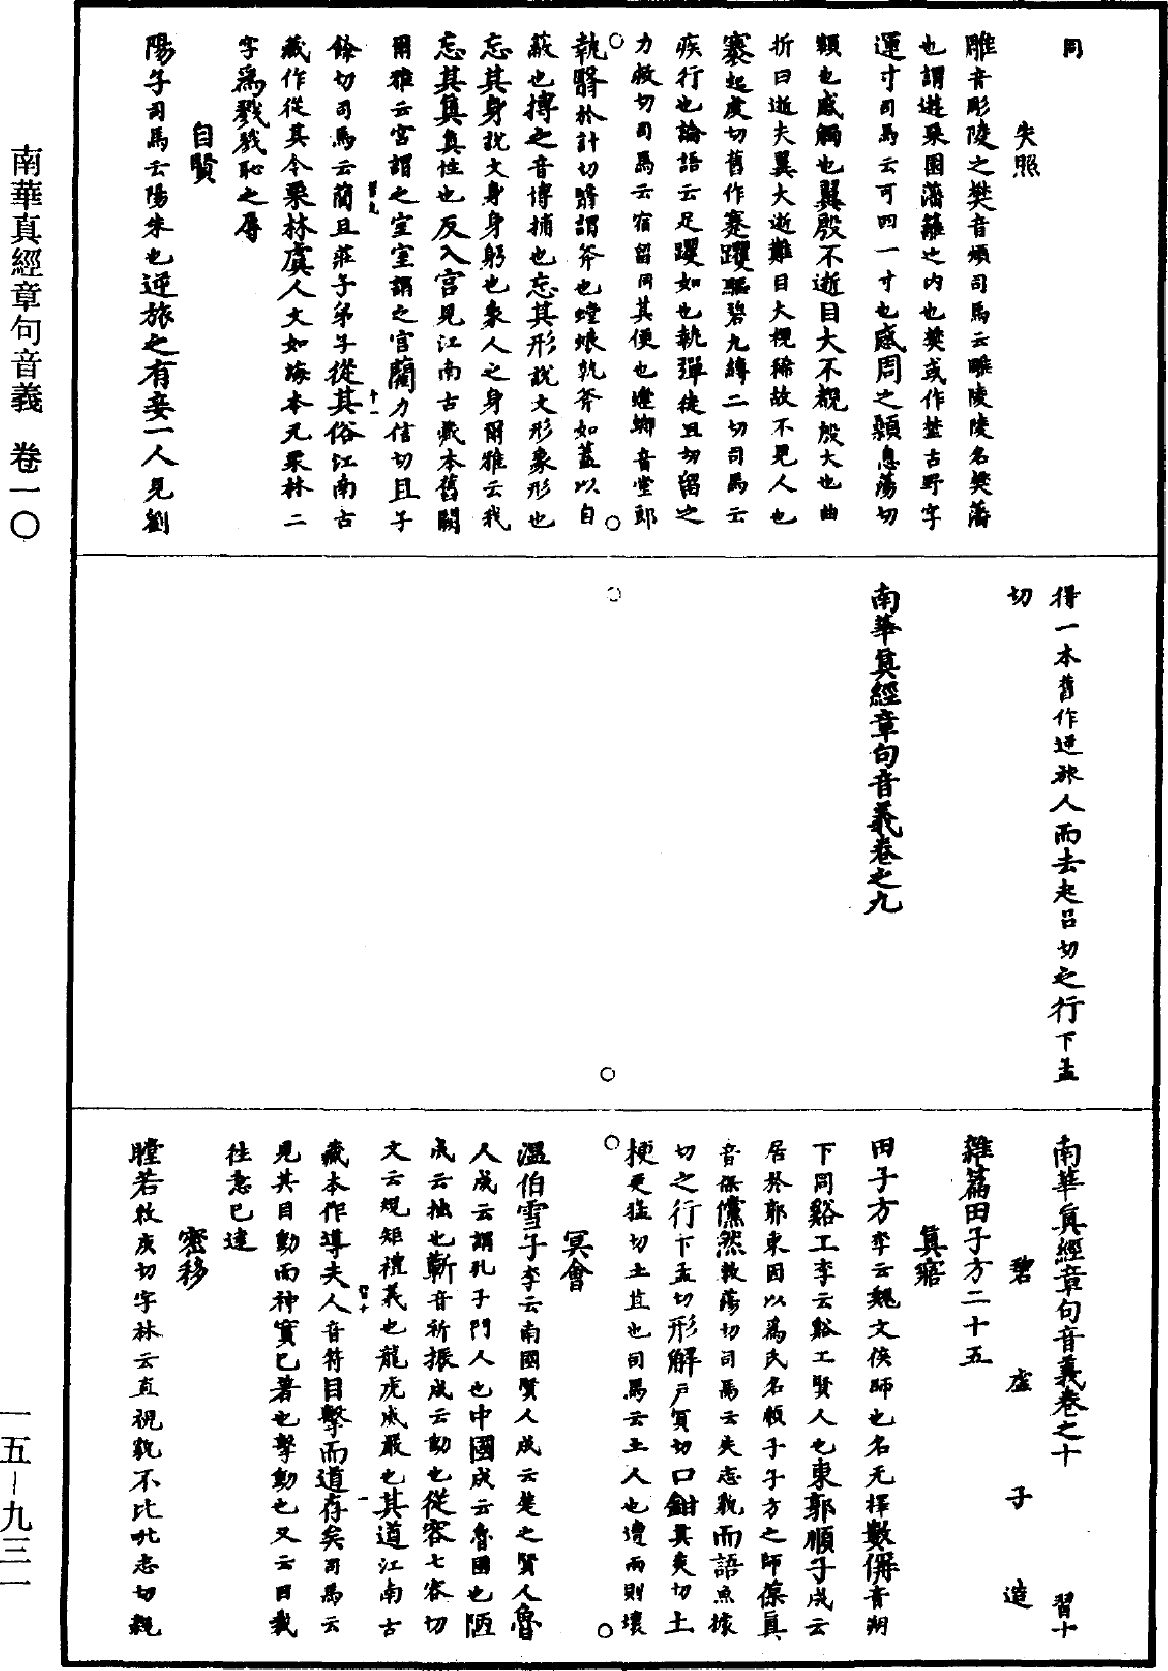 南華真經章句音義　卷一〇
一五—九三一
同
失照
雕音彫陵之樊音煩司馬云雕陵陵名樊藩
也謂遊栗園藩籬之内也樊或作埜古野字
運寸司馬云可四一寸也感周之顙息蕩切
顙也感觸也翼殷不逝目大不覩殷大也曲
折曰逝夫翼大逝難目大視稀故不見人也
褰起虔切舊作蹇躩驅碧九縛二切司馬云
疾行也論語云足躩如也執彈徒旦切留之
力救切司馬云宿留伺其便也螳蜋音堂郎
執翳於計切翳謂斧也螳蜋執斧如蓋以自
蔽也搏之音博捕也忘其形說文形象形也
忘其身說文身身躬也象人之身爾雅云我
忘其真真性也反入宫見江南古藏本舊闕
爾雅云宫謂之室室謂之宫藺力信切且子
餘切司馬云藺且莊子弟子從其俗江南古
藏作從其令栗林虞人文如海本无栗林二
字爲戮戮恥之辱
自賢
陽子司馬云陽朱也逆旅之有妾一人見劉
得一本舊作逆旅人而去起吕切之行下孟
切
南華真經章句音義卷之九
南華真經章句音義卷之十　習十
碧虛子造
雜篇田子方二十五
真寤
田子方李云魏文侯師也名无擇數偁音朔
下同谿工李云谿工賢人也東郭順子成云
居於郭東因以爲氏名順子子方之師葆真
音保儻然敕蕩切司馬云失志貌而語魚據
切之行下孟切形解戶買切口鉗其炎切土
梗更猛切土苴也司馬云土人也遭雨則壞
冥會
温伯雪子李云南國賢人成云楚之賢人魯
人成云謂孔子門人也中國成云魯國也陋
成云拙也蘄音祈振成云動也從容七容切
文云規矩禮義也龍虎威嚴也其道江南古
藏本作導夫人音符目擊而道存矣司馬云
見其目動而神實已著也擊動也又云目裁
往意已達
密移
瞠若敕庚切字林云直視貌不比毗志切親